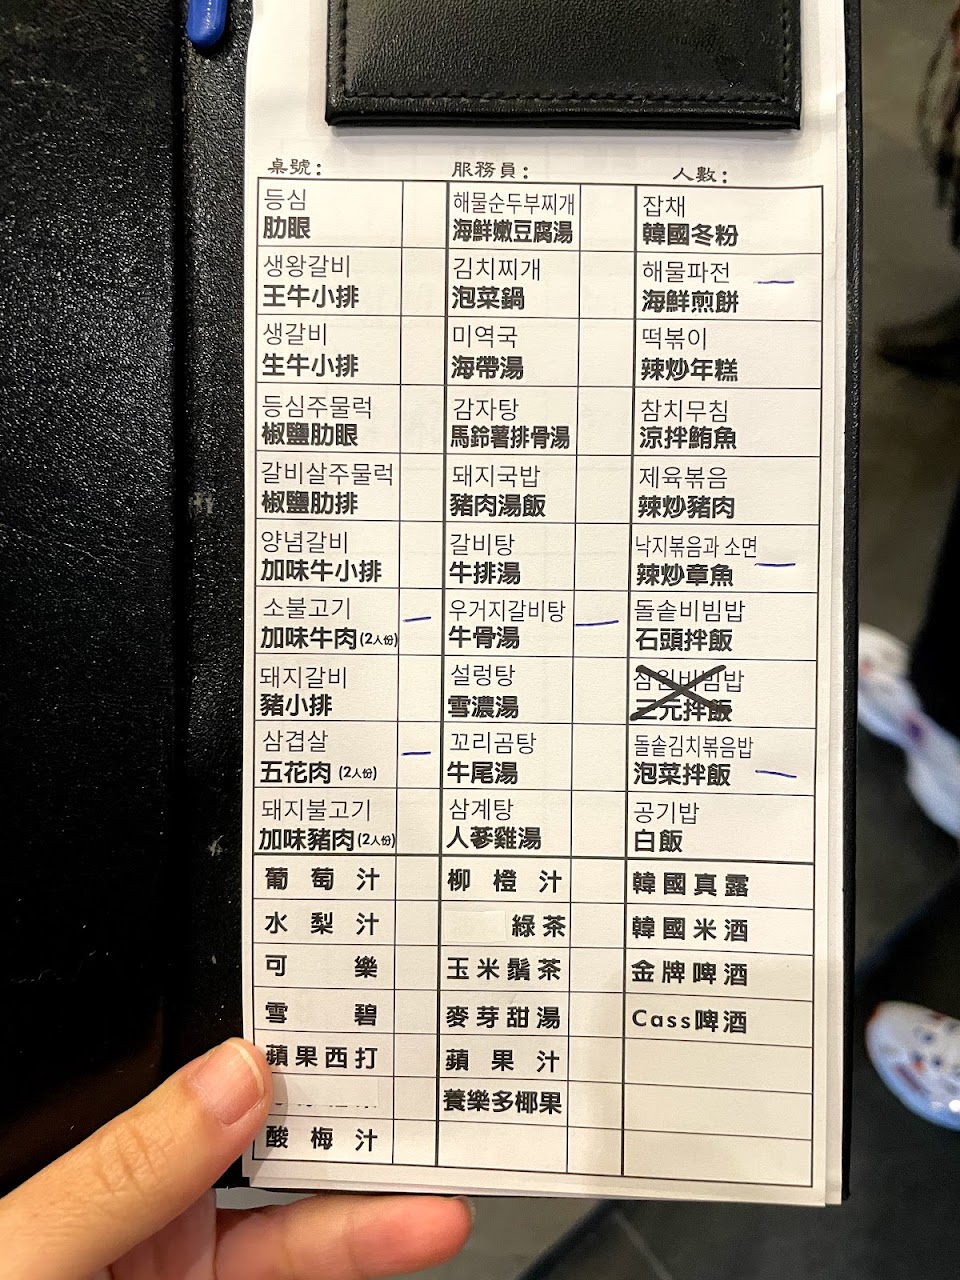 桌號: 服務員: 人數:
등심
肋眼
해물순두부찌개
海鮮嫩豆腐湯
잡채
韓國冬粉
생왕갈비
王牛小排
김치찌개
泡菜鍋
해물파전
海鮮煎餅
생갈비
生牛小排
미역국
海帶湯
떡볶이
辣炒年糕
등심주물럭
椒鹽肋眼
감자탕
馬鈴薯排骨湯
참치무침
涼拌鮪魚
갈비살주물럭
椒鹽肋排
돼지국밥
豬肉湯飯
제육볶음
辣炒豬肉
양념갈비
加味牛小排
갈비탕
牛排湯
낙지볶음과 소면
辣炒章魚
소불고기
加味牛肉(2人份)
우거지갈비탕
牛骨湯
돌솥비빔밥
石頭拌飯
돼지갈비
豬小排
설렁탕
雪濃湯
삼원비빔밥
三元拌飯
삼겹살
五花肉 (2人份)
꼬리곰탕
牛尾湯
돌솥김치볶음밥
泡菜拌飯
돼지불고기
加味豬肉(2人份)
삼계탕
人蔘雞湯
공기밥
白飯
葡萄汁 柳橙汁 韓國真露
水梨汁 綠茶 韓國米酒
可樂 玉米鬚茶 金牌啤酒
雪碧 麥芽甜湯 Cass啤酒
蘋果西打 蘋果汁
養樂多椰果
酸梅汁